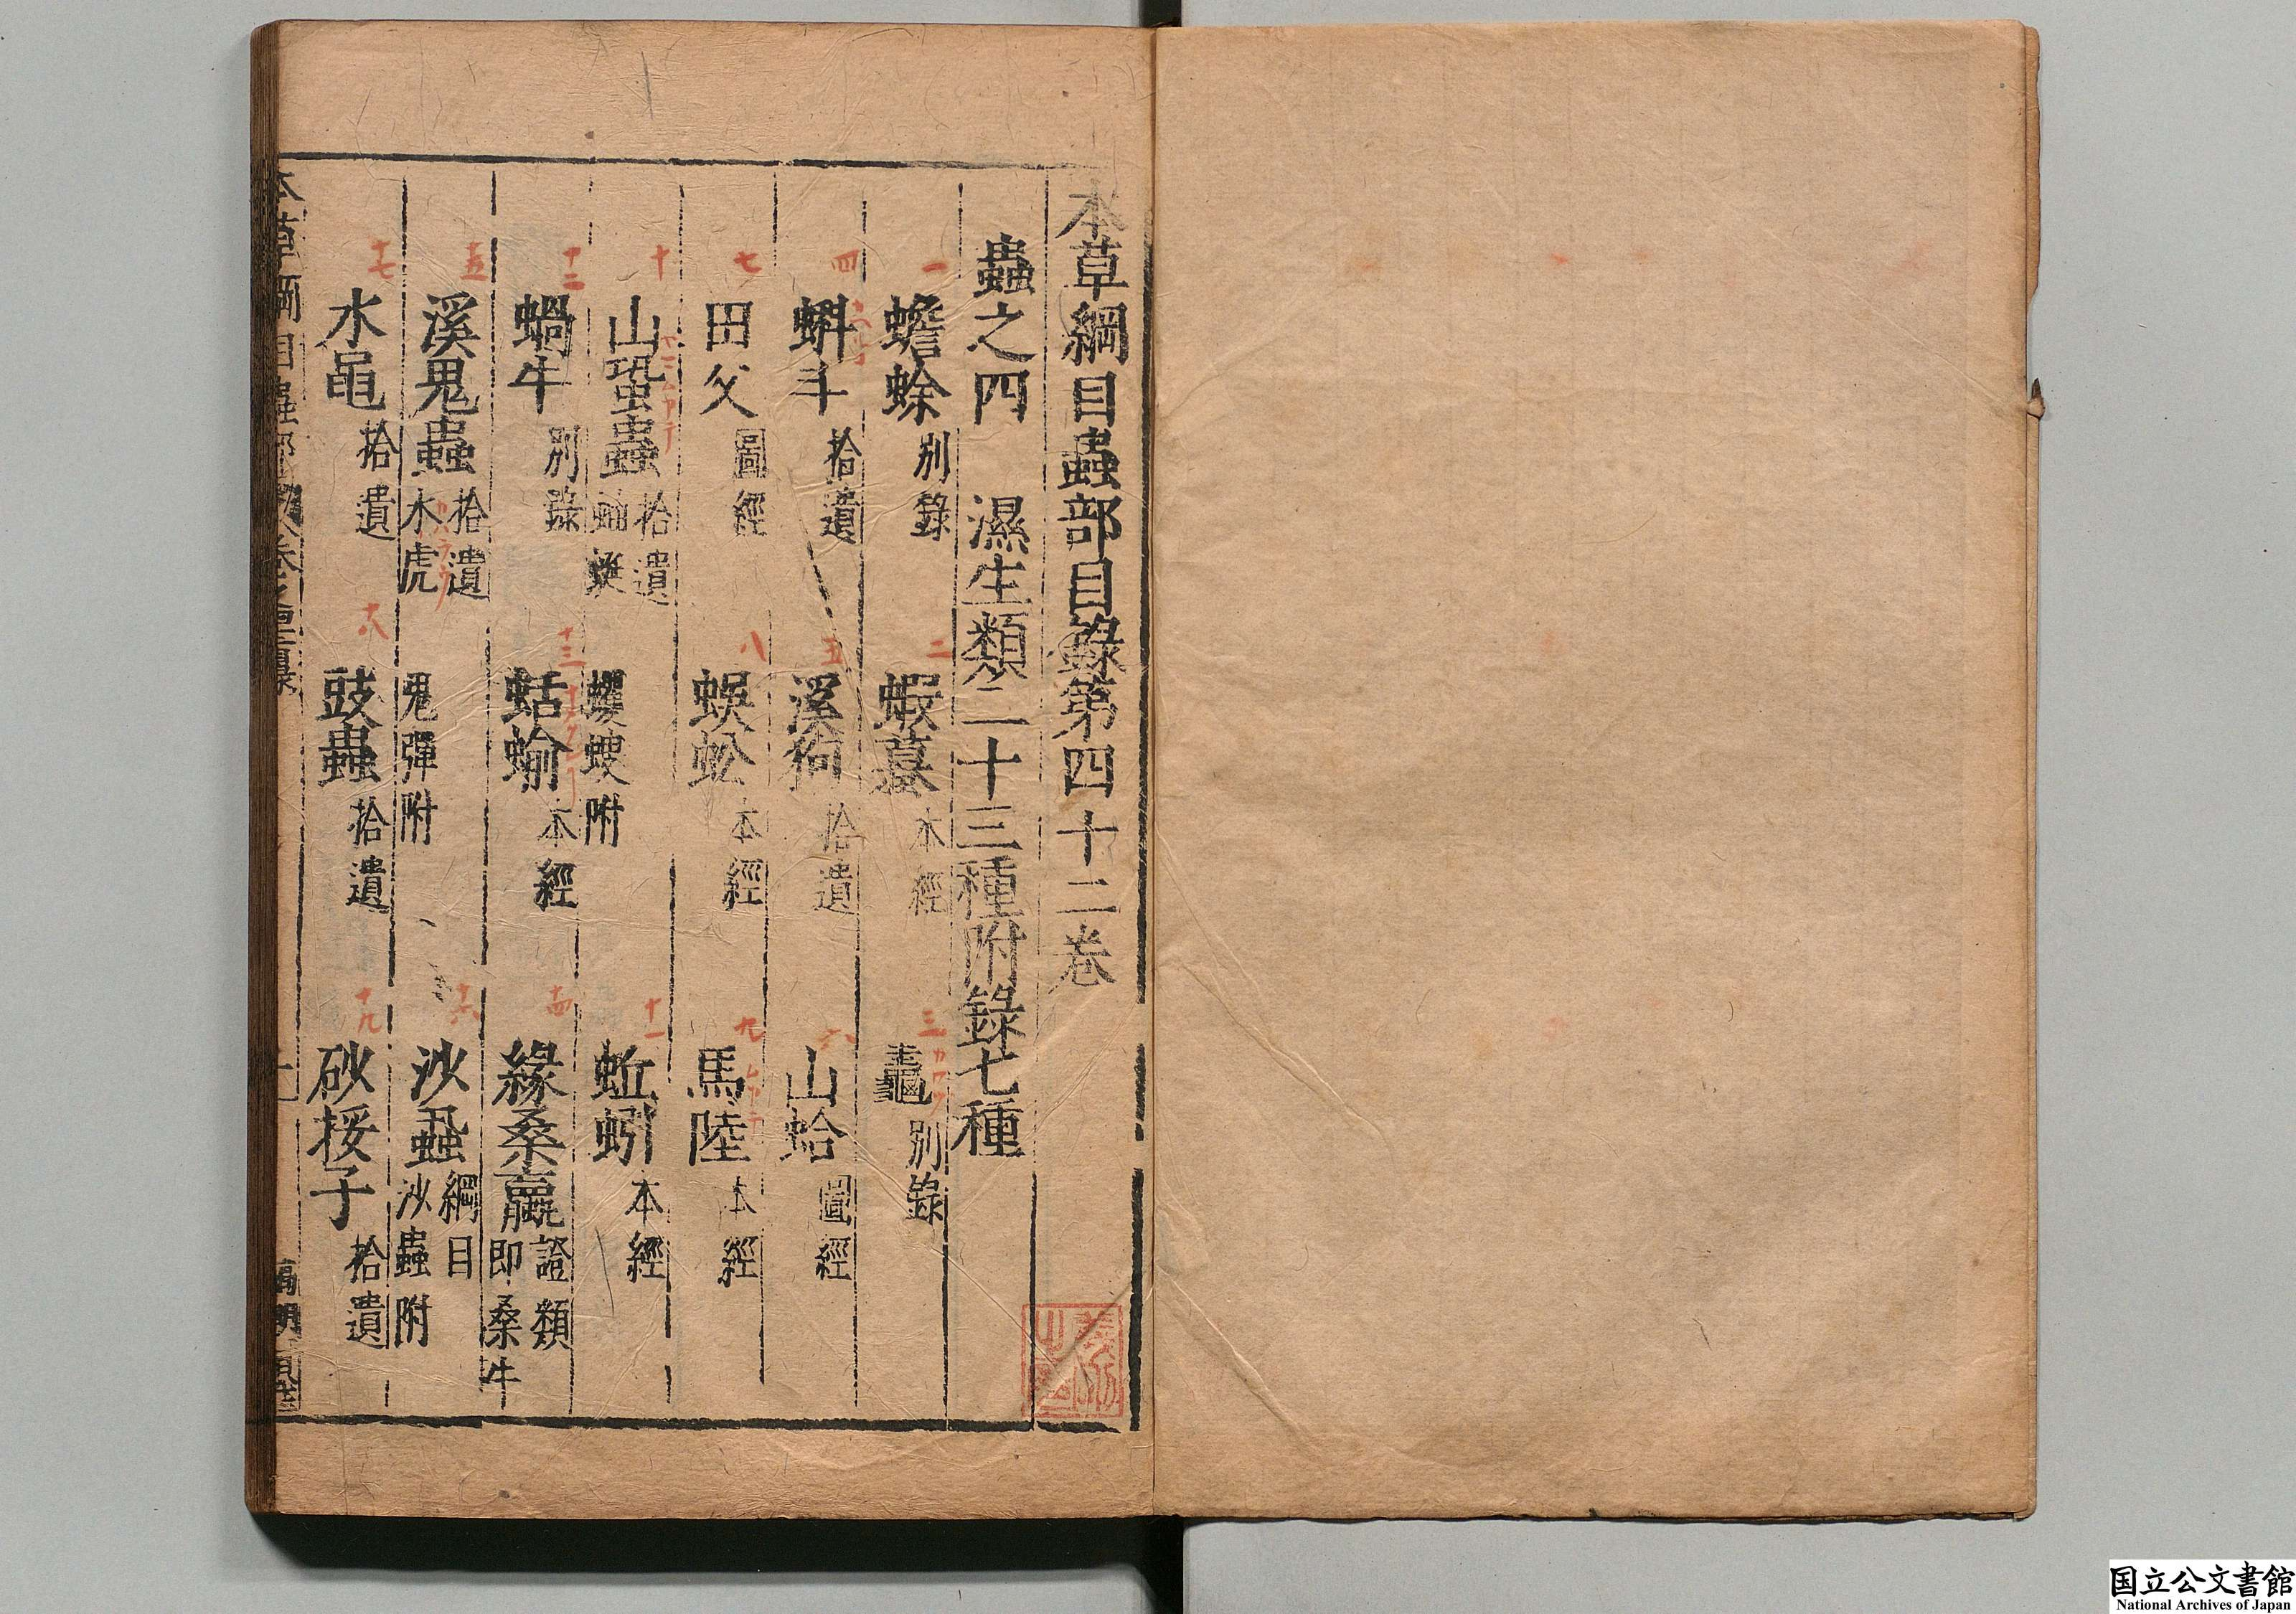 本草綱目蟲部目錄第四十二卷
蟲之四 濕生類二十三種附錄七種
一 蟾蜍 別錄 二 蝦蟇 本經 三 鼃 別錄
四 蝌斗 拾遺 五 溪狗 拾遺 六 山蛤 圖經
七 田父 圖經 八 蜈蚣 本經 九 馬陸 本經
十 山蛩蟲 拾遺 蚰蜒 蠼螋附 十一 蚯蚓 本經
十二 蝸牛 別錄 十三 蛞蝓 本經 十四 緣桑蠃 證類 即桑牛
十五 溪鬼蟲 拾遺 水虎 鬼彈附 十六 沙蝨 綱目 沙蟲附
十七 水黽 拾遺 十八 豉蟲 拾遺 十九 砂挼子 拾遺
本草綱目蟲部
国立公文書館
National Archives of Japan